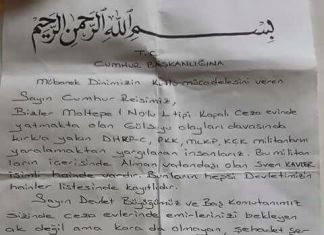 بسم الله الرحمن الرحيم
T.C.
CUMHUR BAŞKANLIĞINA
Mübarek Dinimizin Kutlu mücadelesini veren
Sayın Cumhur Reisimiz,
Bizler Maltepe 1 Nolu L tipi Kapalı Ceza evinde
yatmakta olan Gülsuyu olayları davasında
kırk'a yakın DHKP-C, PKK, MLKP, KCK militanını
yaralamaktan yargılanan insanlarız. Bu militan
ların içerisinde Alman vatandaşı olan Sven
isimli hainde vardır. Bunların hepsi Devletimizin
hainler listesinde kayıtlıdır.
Sayın Devlet Büyüğümüz ve Baş komutanımız
sizinde ceza evlerinde emirlerinizi bekleyen
ak değil ama kara da olmayan, şehadet şer